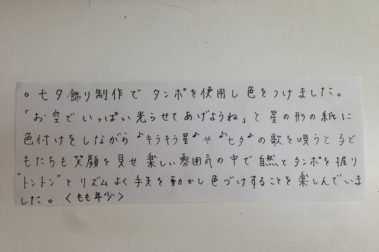 ○ 七夕飾り制作で タンポを使用し色をつけました。
「お空で いっぱい光らせてあげようね」と 星の形の紙に
色付けをしながら "キラキラ星"や"七夕"の歌を唄うと子ど
もたちも笑顔を見せ 楽しい雰囲気の中で自然とタンポを握り
"トントン"と リズムよく手先を動かし色づけすることを楽しんでいま
した。〈もも年少〉